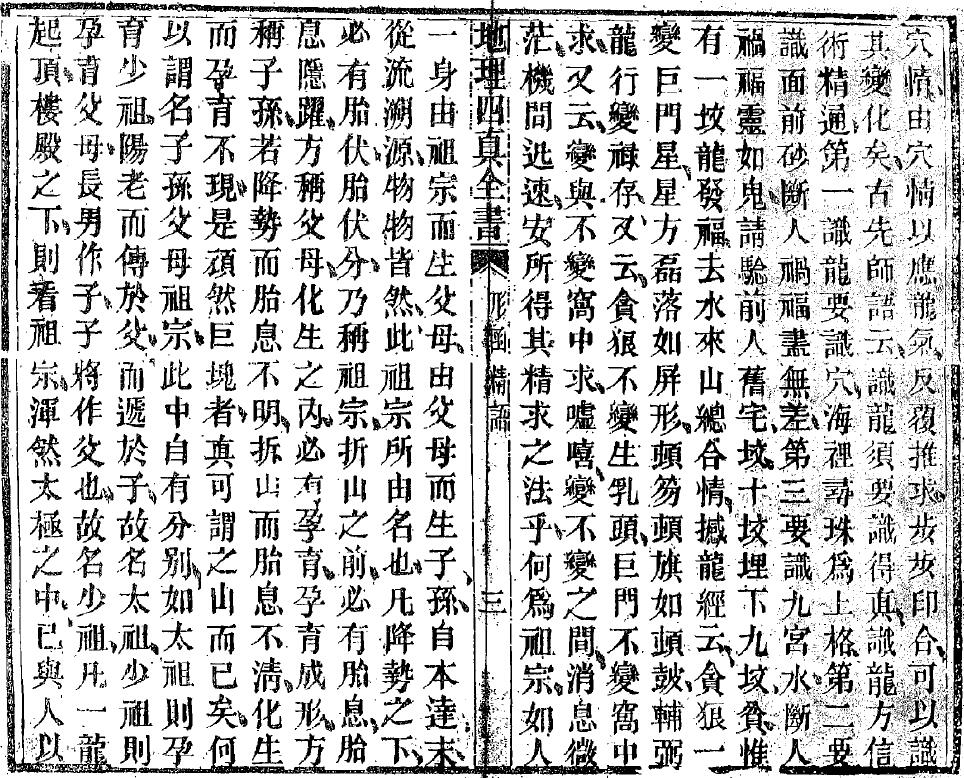 穴情由穴情以應龍氣反覆推求步步印合可以識
其變化矣古先師語云識龍須要識得真識龍方信
術精通第一識龍要識穴海裡尋珠為上格第二要
識面前砂斷人禍福盡無差第三要識九宮水斷人
禍福靈如鬼請驗前人舊宅坟十坟埋下九坟貧惟
有一坟龍發福去水來山總合情撼龍經云貪狼一
變巨門星星方磊落如屏形頓笏頓旗如頓鼓輔弼
龍行變祿存又云貪狼不變生乳頭巨門不變窩中
求又云變與不變窩中求噓嘻變不變之間消息微
茫機問迅速安所得其精求之法乎何為祖宗如人
地理四真全書 形勢精語 三
一身由祖宗而生父母由父母而生子孫自本達末
從流溯源物物皆然此祖宗所由名也凡降勢之下
必有胎伏胎伏分乃稱祖宗折山之前必有胎息胎
息隱躍方稱父母化生之內必有孕育孕育成形方
稱子孫若降勢而胎息不明折山而胎息不清化生
而孕育不現是頑然巨塊者真可謂之山而已矣何
以謂名子孫父母祖宗此中自有分別如太祖則孕
育少祖陽老而傳於父而遞於子故名太祖少祖則
孕育父母長男作子子將作父也故名少祖凡一龍
起頂樓殿之下則看祖宗渾然太極之中已與人以